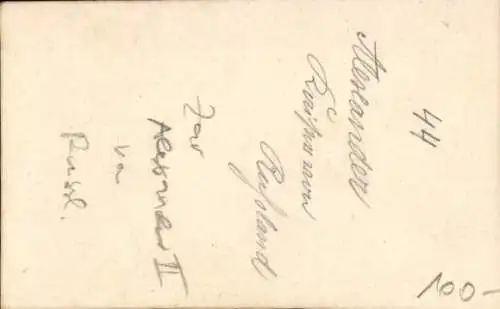 44
Alexander
Kaiser von
Rußland
Zar
Alexander II
von
Russl.
100-